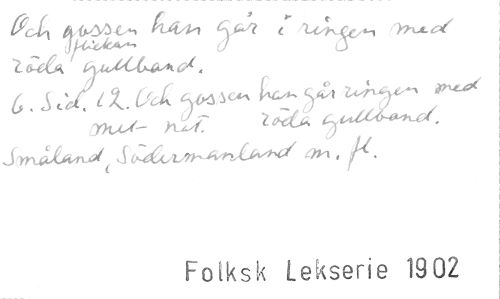 Och gossen han går i ringen med
flickan
röda gullband.
6. Sid. 12. Och gossen han går ringen med
mel- not. röda gullband.
Småland, Södermanland m. fl.
Folksk Lekserie 1902